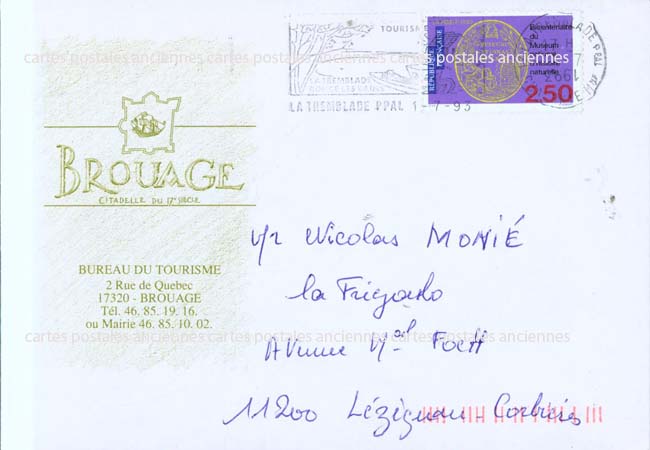 TOURISME
LA TREMBLADE
RONCE LES BAINS
LA TREMBLADE PPAL 1-7-93
REPUBLIQUE FRANÇAISE
Bicentenaire
du
Muséum
naturelle
2,50
cartes postales anciennes cartes postales anciennes cartes postales anciennes
BROUAGE
CITADELLE DU 17e SIÈCLE
BUREAU DU TOURISME
2 Rue de Quebec
17320 - BROUAGE
Tél. 46. 85. 19. 16.
ou Mairie 46. 85. 10. 02.
Nicolas MONIÉ
la
Avenue Mal FOCH
11200 Lézignan-Corbières
cartes postales anciennes cartes postales anciennes cartes postales anciennes